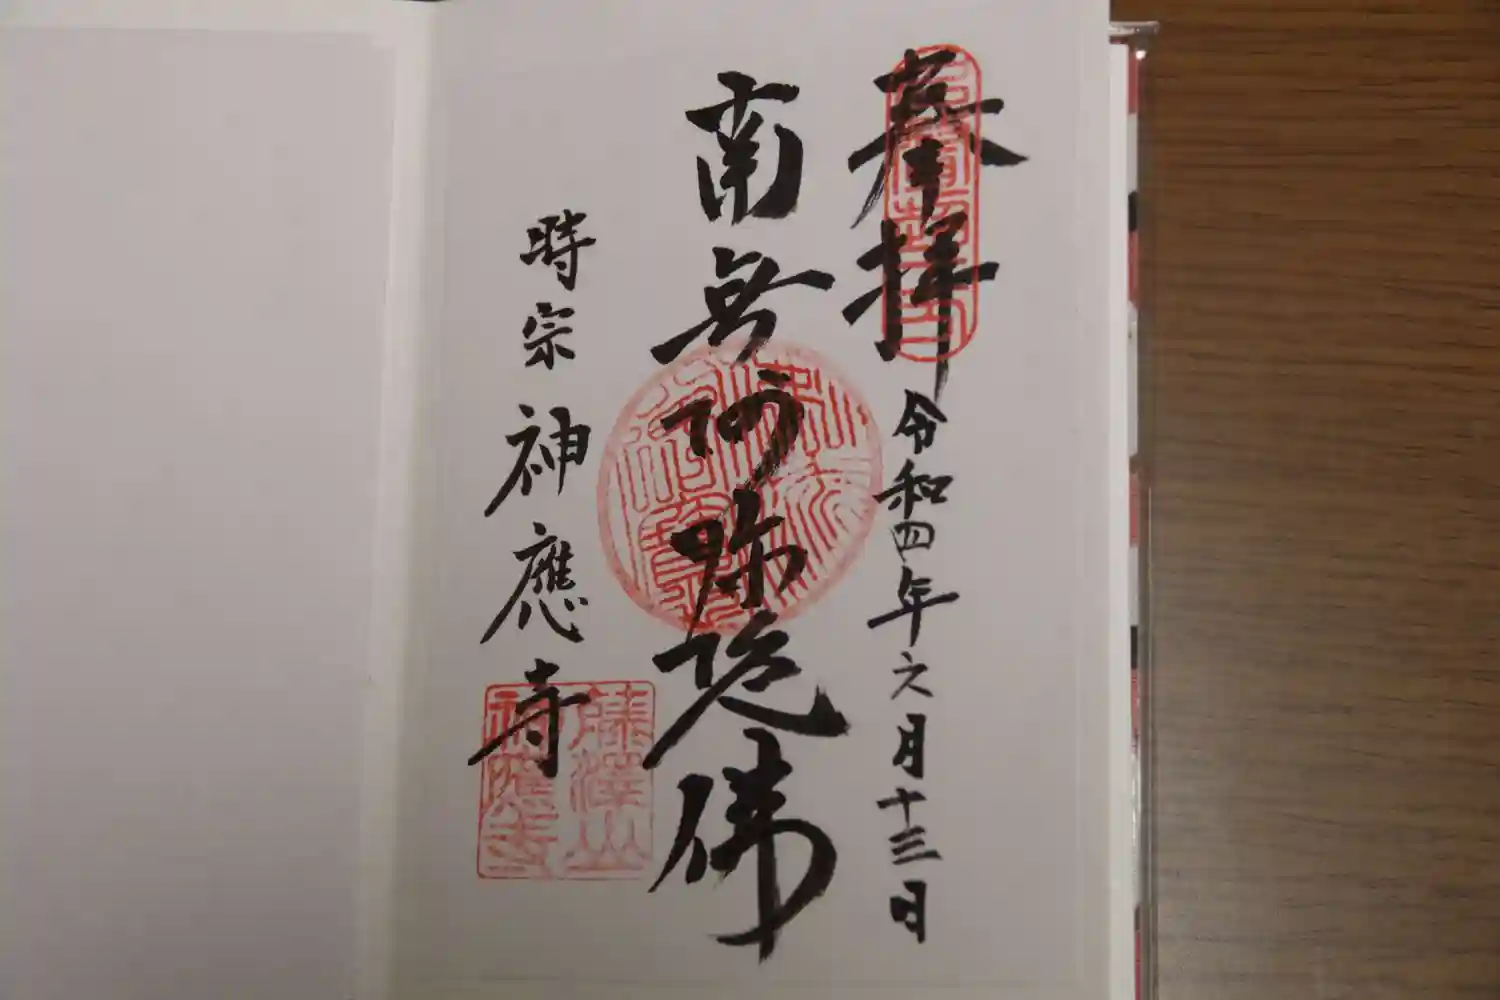 奉拝
令和四年六月十三日
南無阿弥陀佛
時宗 神應寺
藤澤山
神應寺